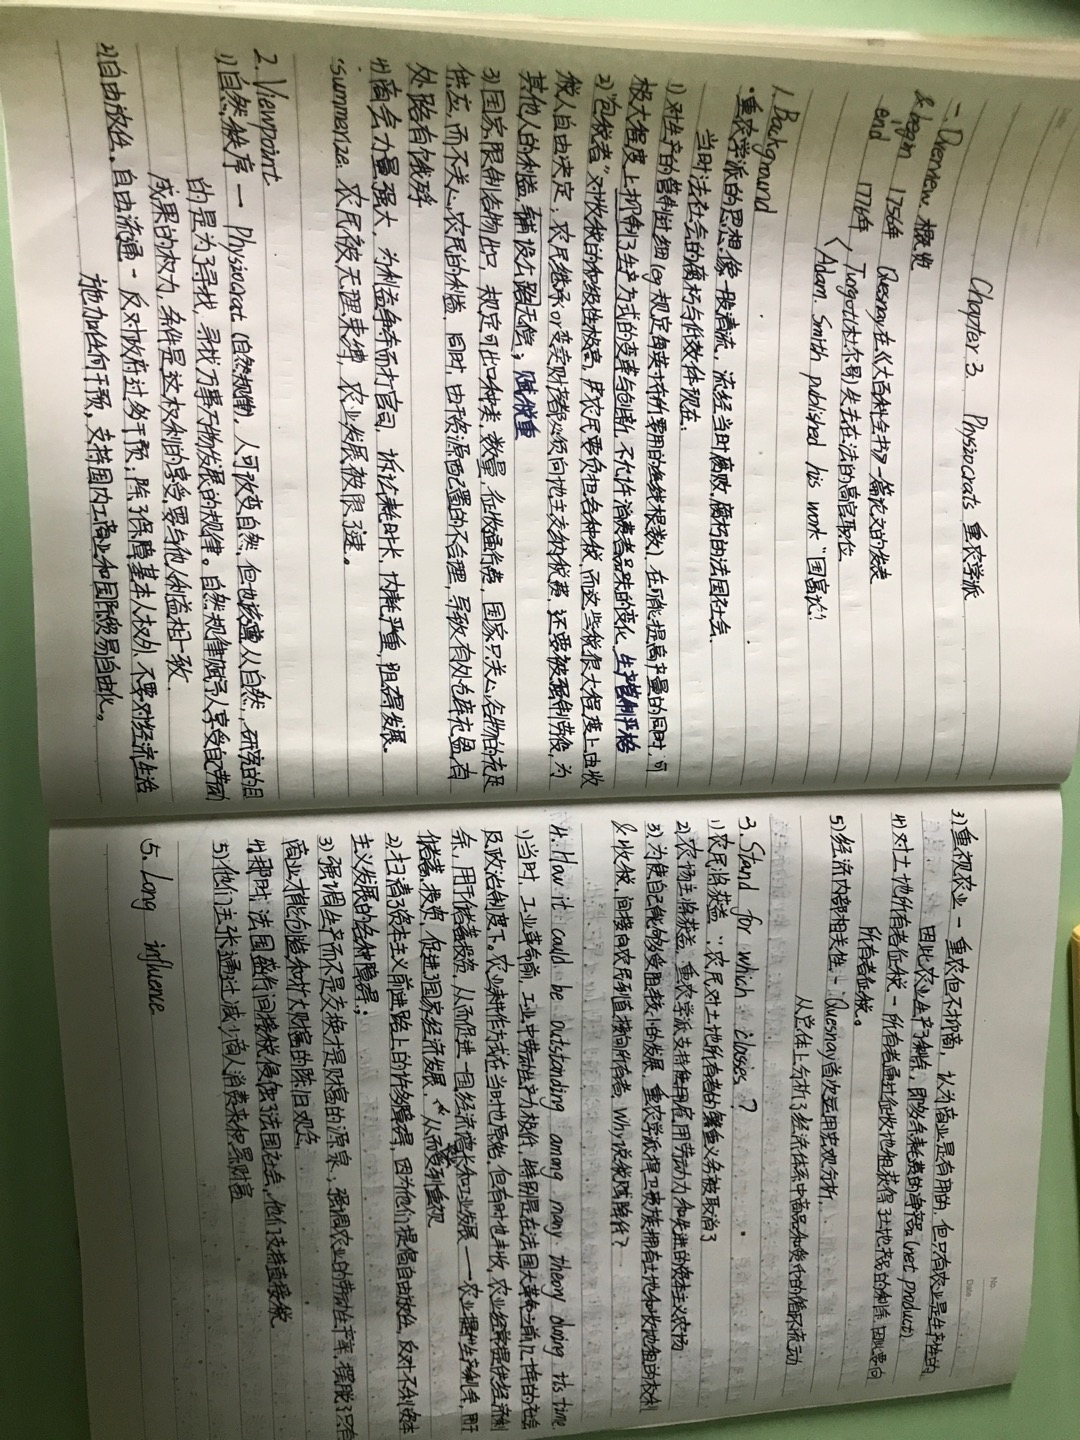 Chapter 3. Physiocrats 重农学派
一、Overview 概览
& begin 1756年 Quesnay在《大百科全书》一篇论文的发表
end 1776年 Turgot(杜尔哥)失去在法的高官职位
Adam. Smith published his work "国富论"
1. Background
·重农学派的思想像一股清流、流经当时腐败、腐朽的法国社会.
当时法社会的腐朽与低效体现在:
1) 对生产的管制过细(eg 规定每英寸布所要用的线根数)在可能提高产量的同时,可
极大程度上抑制了生产方式的变革与创新,不允许消费者品味的变化,生产管制严格
2)"包税者"对收税的积极性极高,法农民要负担各种税,而这些税很大程度上由收
税人自由决定;农民继承or变卖财产都必须向地主交纳税费,还要被强制劳役,为
其他人的利益,铺设公路无偿;赋税重
3) 国家限制谷物出口,规定可出口种类、数量,征收通行费,国家只关心谷物的充足
供应,而不关心农民的利益,同时,由于资源配置的不合理,导致有处仓库充盈,有
处路有饿殍
4) 商会力量强大,为利益争夺而打官司,诉讼耗时长,内耗严重,阻碍发展.
·summarize. 农民被无理束缚,农业发展被限制。
2. Viewpoint
1) 自然秩序 — Physiocrat (自然规律),人可改变自然,但也该遵从自然,研究的目
的是为了寻找,寻找万事万物发展的规律。自然规律赋予人享受自己劳动
成果的权力,条件是这权利的享受要与他人利益相一致.
2) 自由放任,自由流通 - 反对政府过多干预,除了保障基本人权外,不要对经济生活
施加任何干预,支持国内工商业和国际贸易自由化。
3) 重视农业 — 重农但不抑商,认为商业是有用的,但只有农业是生产性的
因此农业生产了剩余,即效余耗费的净额 (net product)
4) 对土地所有者征税 - 所有者通过征收地租获得了土地产品的剩余,因此要向
所有者征税。
5) 经济内部相关性 - Quesnay首次运用宏观分析,
从总体上分析了经济体系中商品和货币的循环流动
3. Stand for which classes ?
1) 农民将获益 ∵ 农民对土地所有者的义务被取消了
2) 农场主将获益,重农学派支持使用雇用劳动力和先进的资本主义农场
3) 为使自己能够受阻较小的发展,重农学派捍卫贵族拥有土地和收地租的权利
& 收税,间接向农民到直接向所有者,Why说税贱降低?
4. How it could be outstanding among many theory during its time.
1) 当时,工业革命前,工业中劳动生产力极低,特别是在法国大革命之前几十年的社会
及政治制度下。农业耕作方式在当时也原始,但有时也丰收,农业经常提供经济剩
余,用于储蓄投资,从而促进一国经济增长和工业发展——农业提供生产剩余,用于
储蓄,投资,促进了国家经济发展,从而受到重视
2) 扫清了资本主义前进路上的许多障碍,因为他们提倡自由放任,反对不利资本
主义发展的各种障碍;
3) 强调生产而不是交换才是财富的源泉;强调农业的劳动生产率,摆脱了只有
商业才能创造和扩大财富的陈旧观念
4) 那时,法国盛行间接税侵蚀了法国社会,他们支持直接税
5) 他们主张通过减少商人消费来积累财富
5. Long influence